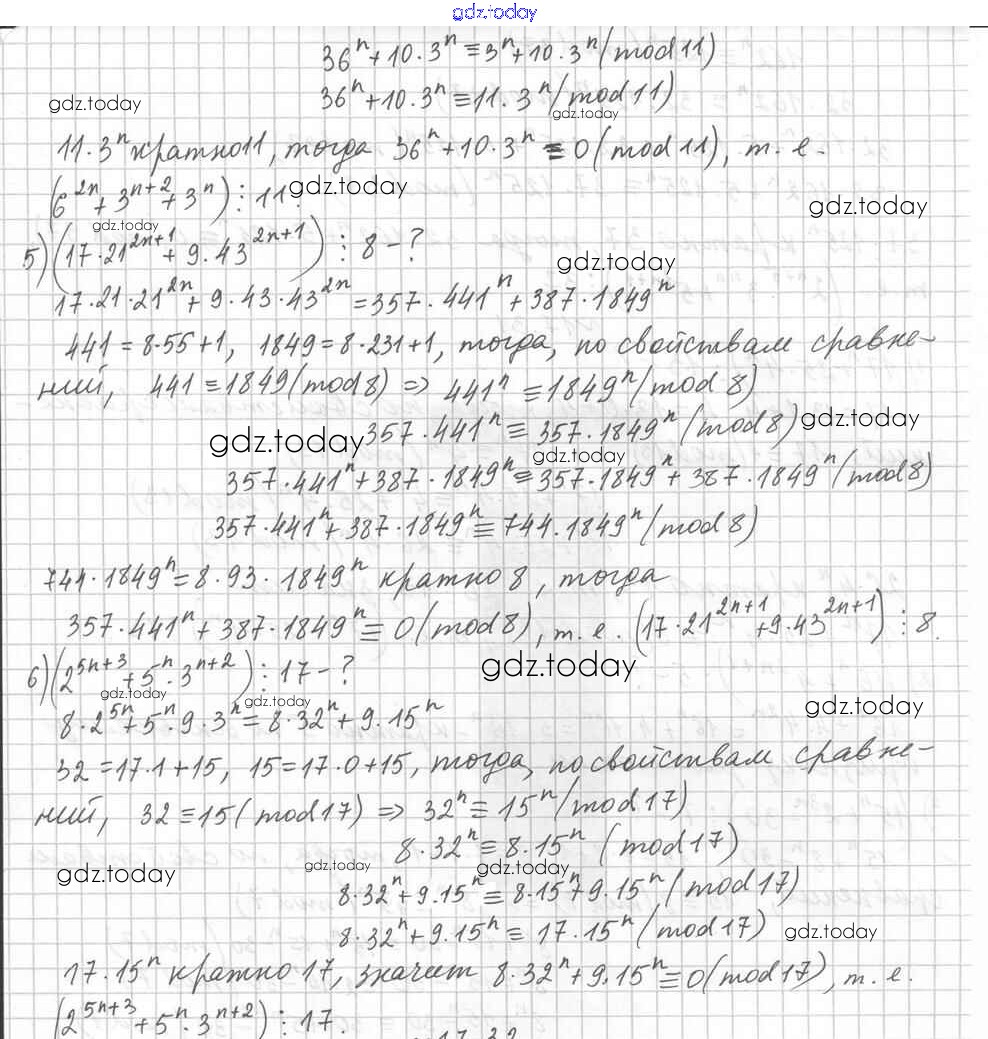 gdz.today
36ⁿ+10·3ⁿ≡3ⁿ+10·3ⁿ(mod 11)
36ⁿ+10·3ⁿ≡11·3ⁿ(mod 11)
gdz.today gdz.today
11·3ⁿ кратно 11, тогда 36ⁿ+10·3ⁿ≡0(mod 11), т. е.
(6²ⁿ+3ⁿ⁺²+3ⁿ)⋮11. gdz.today
gdz.today gdz.today
5) (17·21²ⁿ⁺¹+9·43²ⁿ⁺¹)⋮8-?
gdz.today
17·21·21²ⁿ+9·43·43²ⁿ=357·441ⁿ+387·1849ⁿ
441=8·55+1, 1849=8·231+1, тогда, по свойствам сравне-
ний, 441≡1849(mod 8) ⇒ 441ⁿ≡1849ⁿ(mod 8)
gdz.today 357·441ⁿ≡357·1849ⁿ(mod 8) gdz.today
gdz.today
357·441ⁿ+387·1849ⁿ≡357·1849ⁿ+387·1849ⁿ(mod 8)
357·441ⁿ+387·1849ⁿ≡744·1849ⁿ(mod 8)
744·1849ⁿ=8·93·1849ⁿ кратно 8, тогда
357·441ⁿ+387·1849ⁿ≡0(mod 8), т. е. (17·21²ⁿ⁺¹+9·43²ⁿ⁺¹)⋮8.
6) (2⁵ⁿ⁺³+5ⁿ·3ⁿ⁺²)⋮17-? gdz.today
gdz.today gdz.today gdz.today
8·2⁵ⁿ+5ⁿ·9·3ⁿ=8·32ⁿ+9·15ⁿ
32=17·1+15, 15=17·0+15, тогда, по свойствам сравне-
ний, 32≡15(mod 17) ⇒ 32ⁿ≡15ⁿ(mod 17)
8·32ⁿ≡8·15ⁿ (mod 17)
gdz.today gdz.today gdz.today
8·32ⁿ+9·15ⁿ≡8·15ⁿ+9·15ⁿ(mod 17)
8·32ⁿ+9·15ⁿ≡17·15ⁿ(mod 17) gdz.today
17·15ⁿ кратно 17, значит 8·32ⁿ+9·15ⁿ≡0(mod 17), т. е.
(2⁵ⁿ⁺³+5ⁿ·3ⁿ⁺²)⋮17.